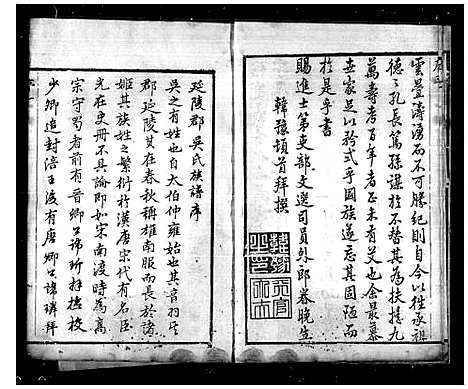 雲蒸濤湧而不可勝紀則自今以往承祖
德之孔長篤孫謀於不替其為扶搖九
萬壽考百年者正未有艾也余最慕
世家足以矜式乎國族遂忘其固陋而
於是乎書
賜進士第吏部文選司員外郎眷晚生
韓 頓首拜撰
延陵郡吳氏族譜序
吳之有姓也自太伯仲雍始也其官羽其
郡延陵其在春秋稱雄南服而長於諸
姬其族姓之繁衍於漢唐宋代有名臣
光在史冊不具論即如宋南渡時為高
宗守蜀者前有晉卿公諱玠授檢校
少師追封涪王後有唐卿公諱璘拜